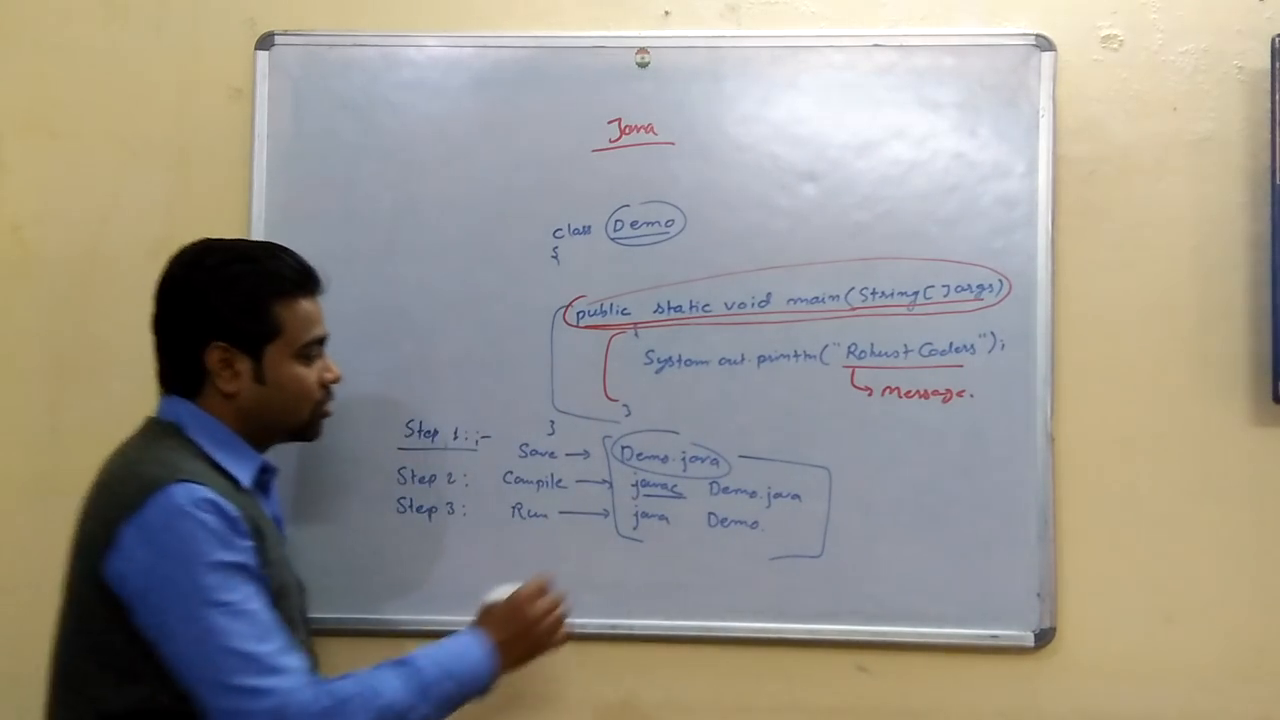 Java
class Demo
{
public static void main(String[]args)
{
System.out.println("Robust Coders");
Message.
}
}
Step 1:;-
Save → Demo.java
Step 2: Compile → javac Demo.java
Step 3: Run → java Demo.